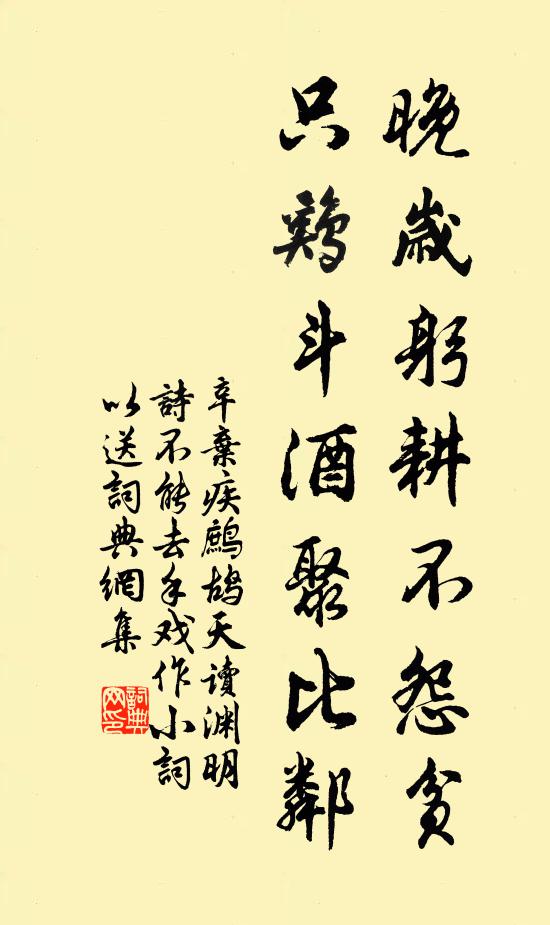 晚歲躬耕不怨貧
只鷄斗酒聚比鄰
辛棄疾鷓鴣天讀淵明
詩不能去手戏作小詞
以送詞典網集
詞典
网印